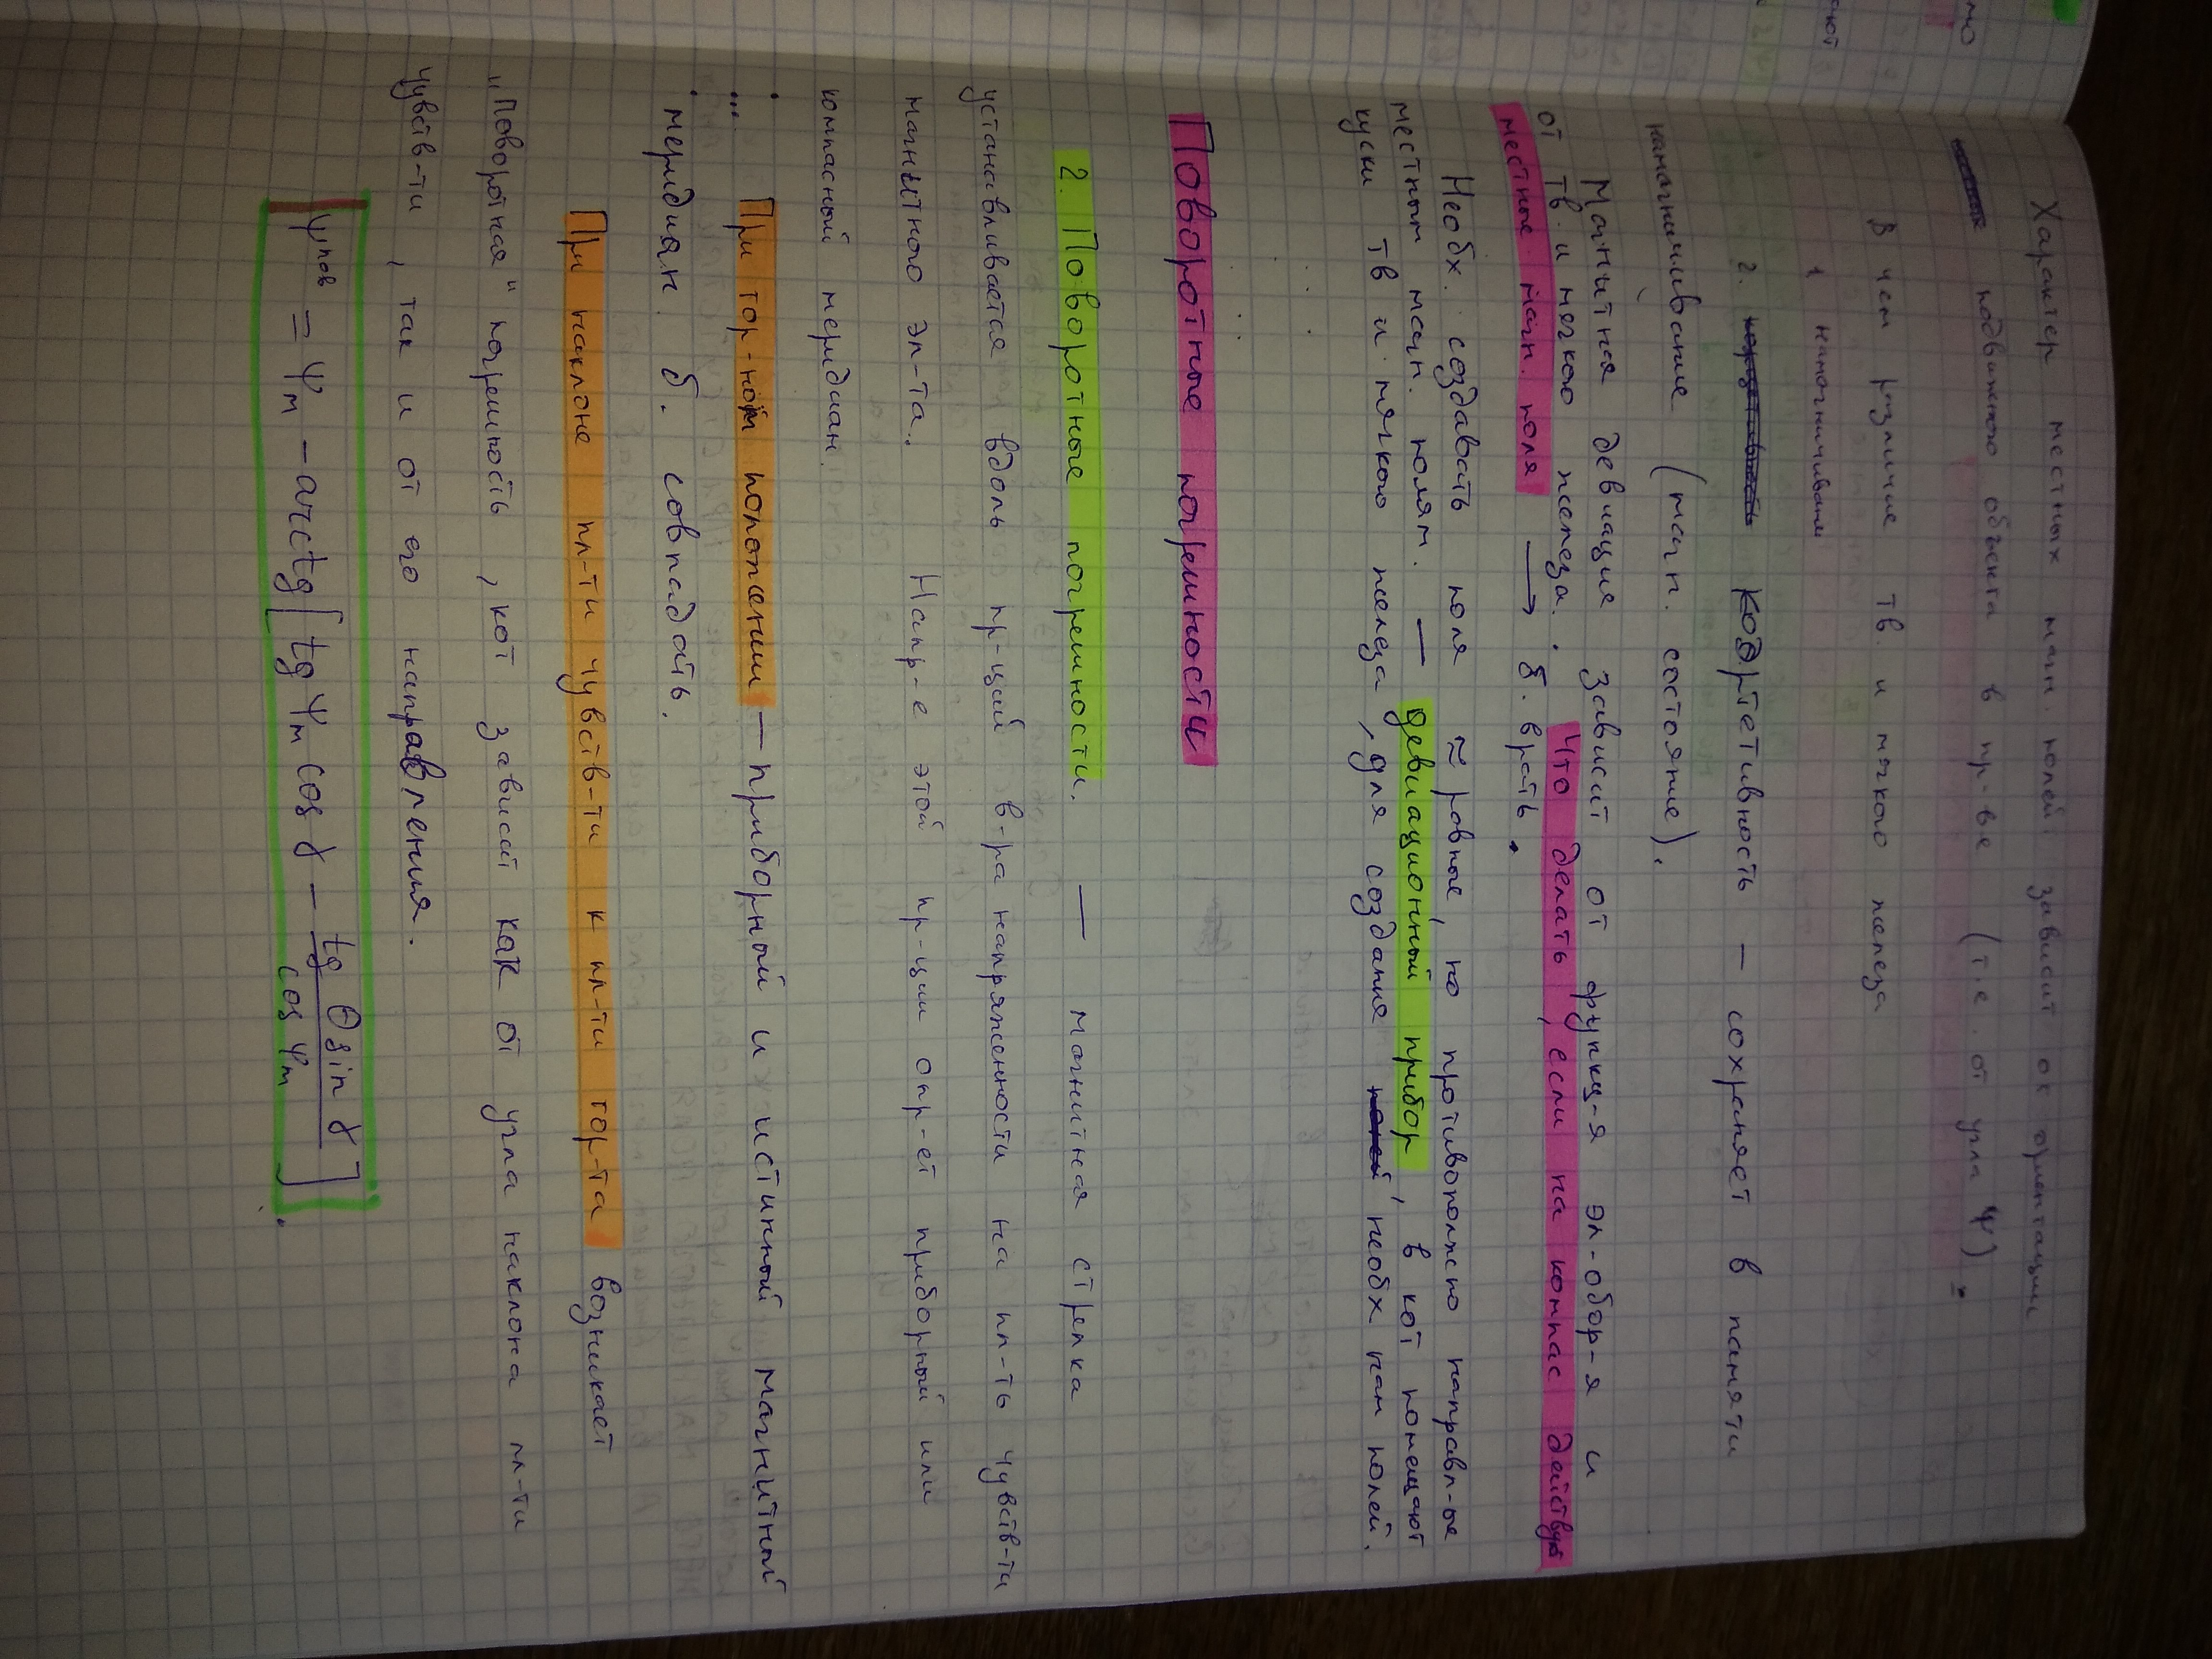 Характер местных магн. полей зависит от ориентации
подвижного объекта в пр-ве (т.е. от угла Ψ).
В чем различие тв и мягкого железа
1 намагничиваем
2. Коэртетивность — сохраняет в памяти
намагничивание (магн. состояние).
Магнитная девиация зависит от функц-я эл-обор-я и
от тв и мягкого железа. Что делать, если на компас действует
местные магн. поля → б. врать.
Необх. создавать поля ≈ равные, но противоположно направл-ые
местным магн. полям. — девиационный прибор, в кот помещают
куски тв и мягкого железа, для создания необх нам полей.
Поворотные погрешности
2. Поворотные погрешности. — магнитная стрелка
устанавливается вдоль пр-ций в-ра напряженности на пл-ть чувств-ти
магнитного эл-та. Напр-е этой пр-ции опр-ет приборный или
компасный меридиан.
При гор-ном положении — приборный и истинный магнитный
меридиан б. совпадать.
При наклоне пл-ти чувств-ти к пл-ти гор-та возникает
„Поворотная" погрешность, кот зависит как от угла наклона пл-ти
чувств-ти, так и от его направления.
Ψпов = Ψм − arctg[tg Ψм cos γ − tg θ sin γ / cos Ψм].